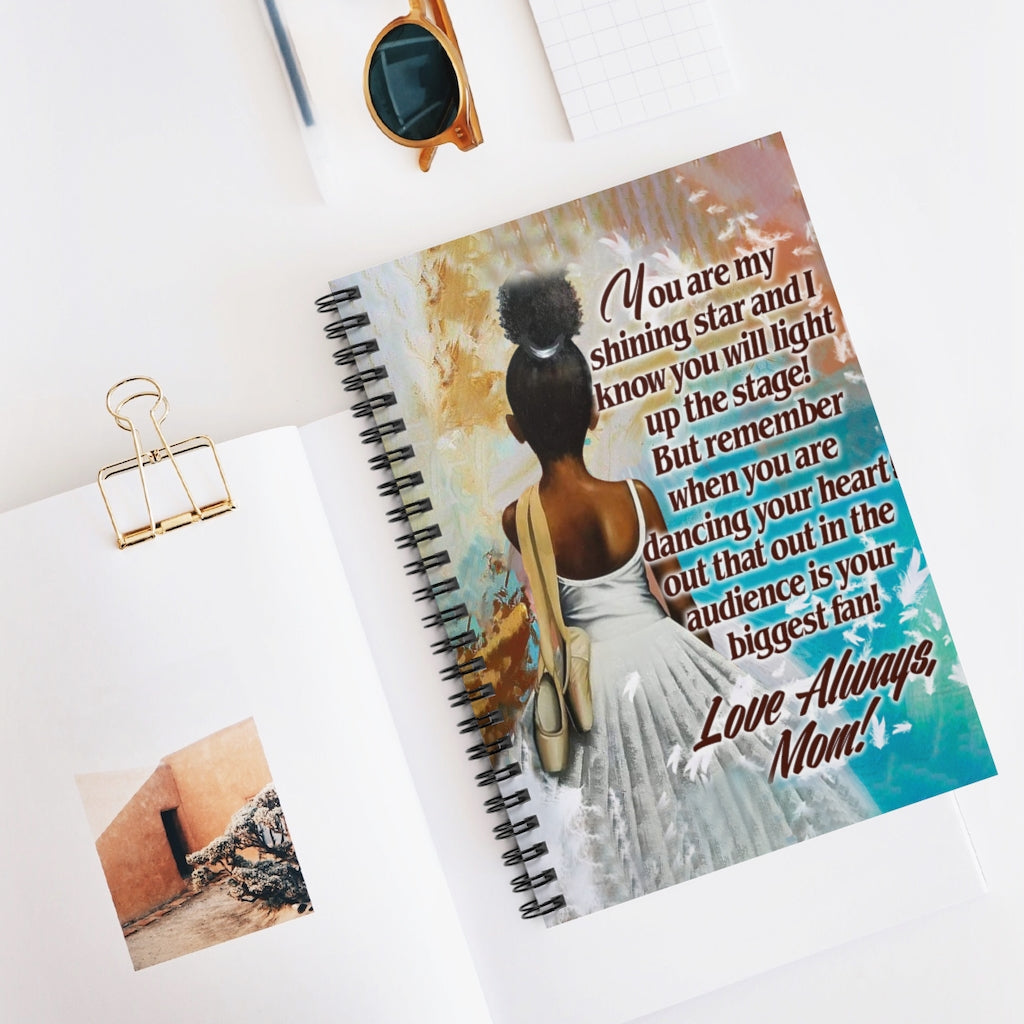 You are my
shining star and I
know you will light
up the stage!
But remember
when you are
dancing your heart
out that out in the
audience is your
biggest fan!
Love Always,
Mom!